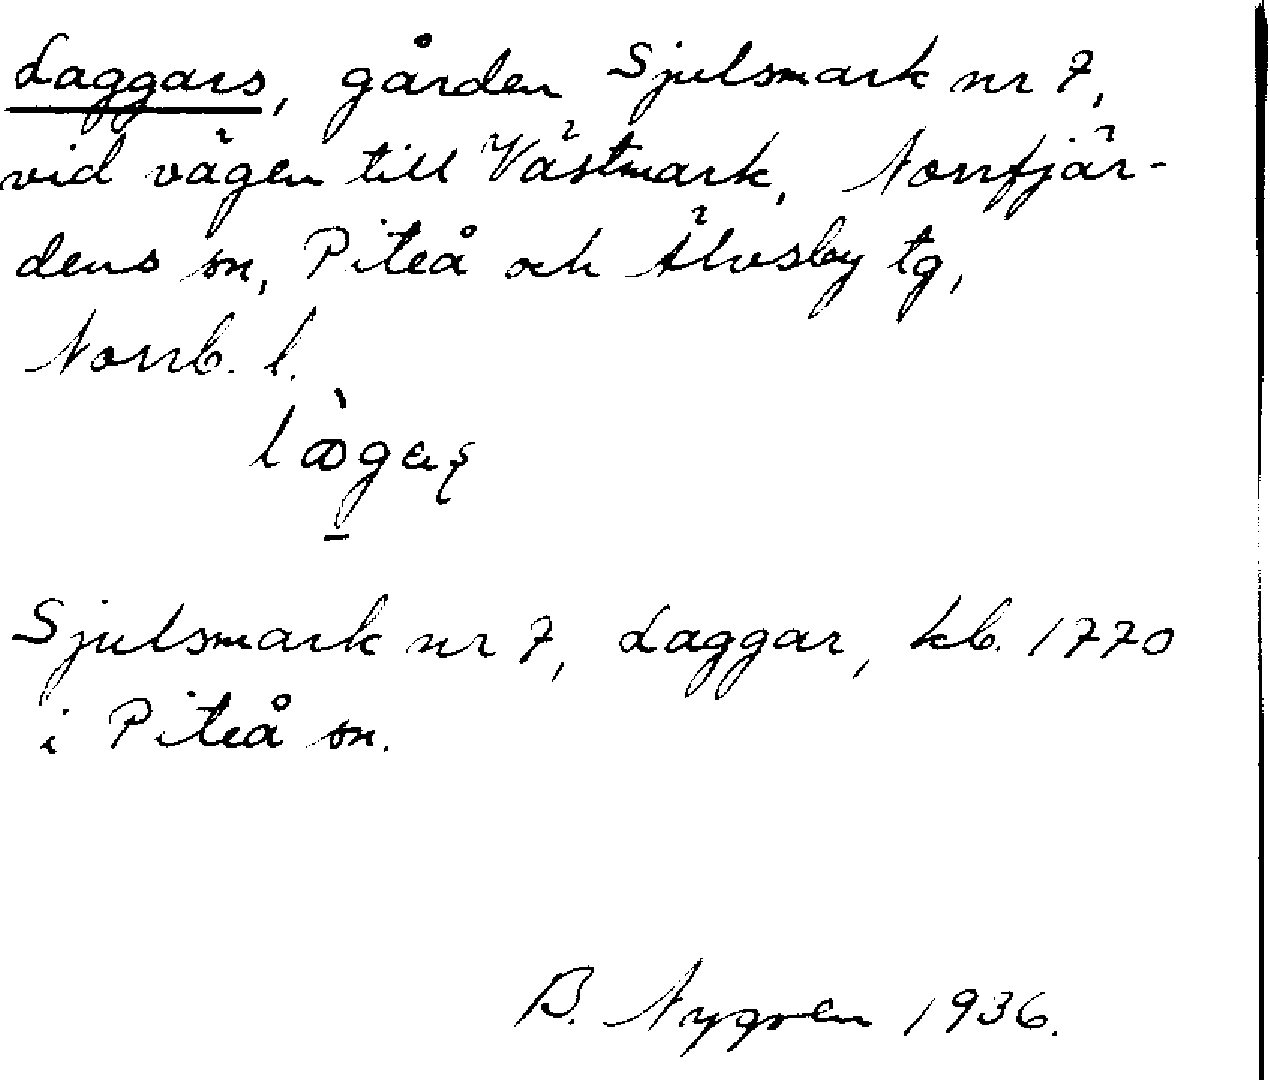 Laggars, gården Sjulsmark nr 7,
vid vägen till Västmark, Norrfjär-
dens sn, Piteå och Älvsby tg,
Norrb. l.
Sjulsmark nr 7, Laggar, kb. 1770
i Piteå sn.
B. Nygren 1936.